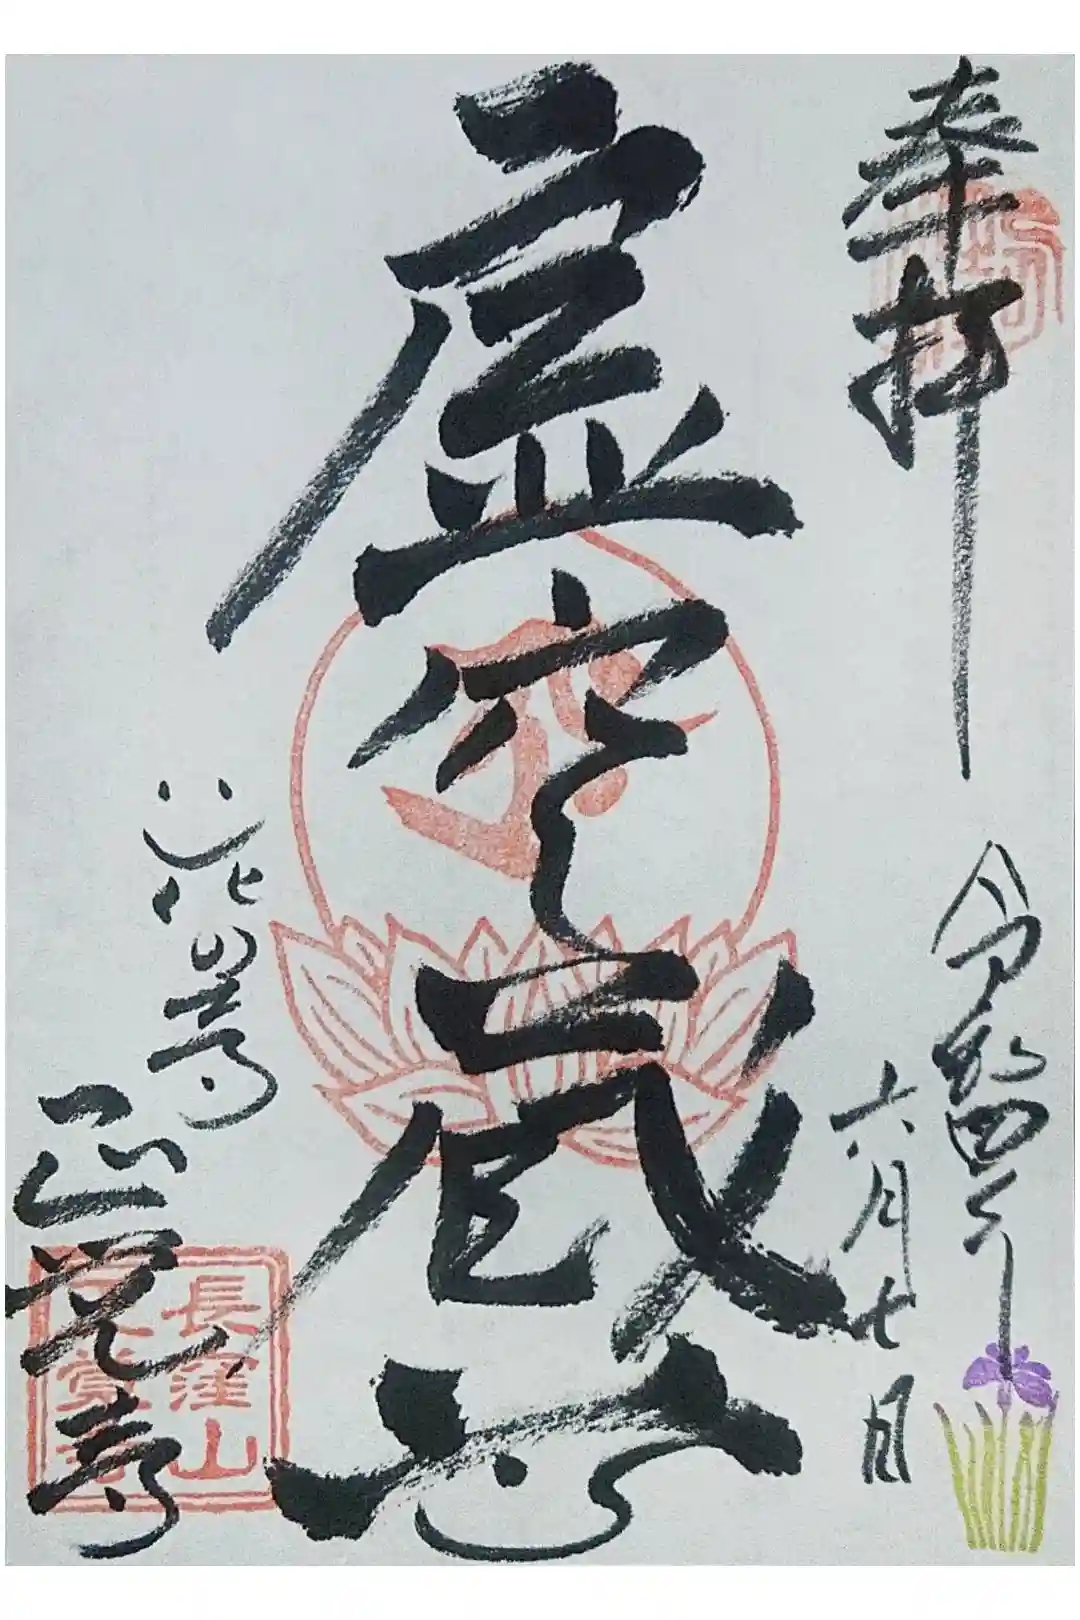 奉拝
令和四年
六月七日
虚空蔵
花の寺
正覚寺
長窪山
正覚寺